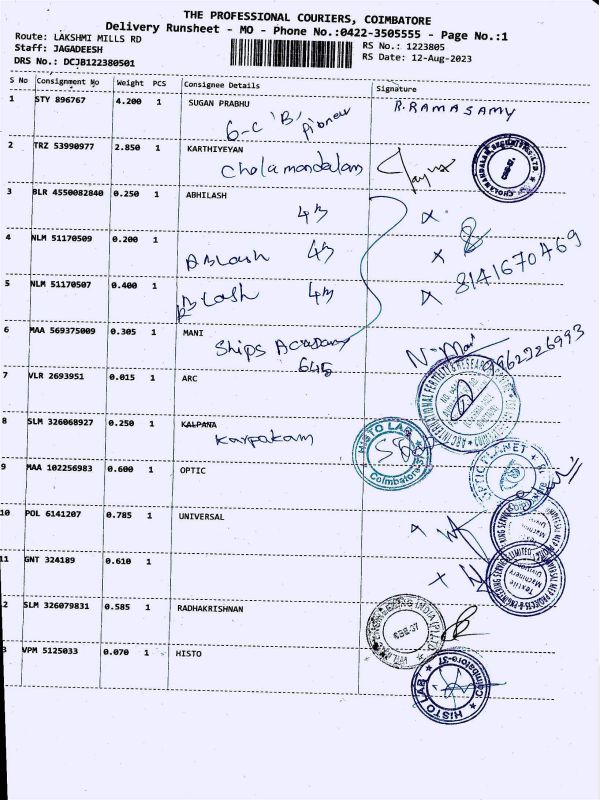 THE PROFESSIONAL COURIERS, COIMBATORE
Delivery Runsheet - MO - Phone No.:0422-3505555 - Page No.:1
Route: LAKSHMI MILLS RD
Staff: JAGADEESH
DRS No.: DCJB122380501
RS No.: 1223805
RS Date: 12-Aug-2023
S No Consignment No Weight PCS Consignee Details Signature
1 STY 896767 4.200 1 SUGAN PRABHU R.RAMASAMY
6-C 'B'
2 TRZ 53990977 2.850 1 KARTHIYEYAN
Cholamandalam
3 BLR 4550082840 0.250 1 ABHILASH
4 NLM 51170509 0.200 1
8141670469
5 NLM 51170507 0.400 1
6 MAA 569375009 0.305 1 MANI
Ships Academy
645
9962926993
7 VLR 2693951 0.015 1 ARC
8 SLM 326068927 0.250 1 KALPANA
Karpakam
HISTO LAB
Coimbatore
9 MAA 102256983 0.600 1 OPTIC
10 POL 6141207 0.785 1 UNIVERSAL
11 GNT 324189 0.610 1
Textile
Machinery
Division
2 SLM 326079831 0.585 1 RADHAKRISHNAN
3 VPM 5125033 0.070 1 HISTO
HISTO LAB
Coimbatore-37